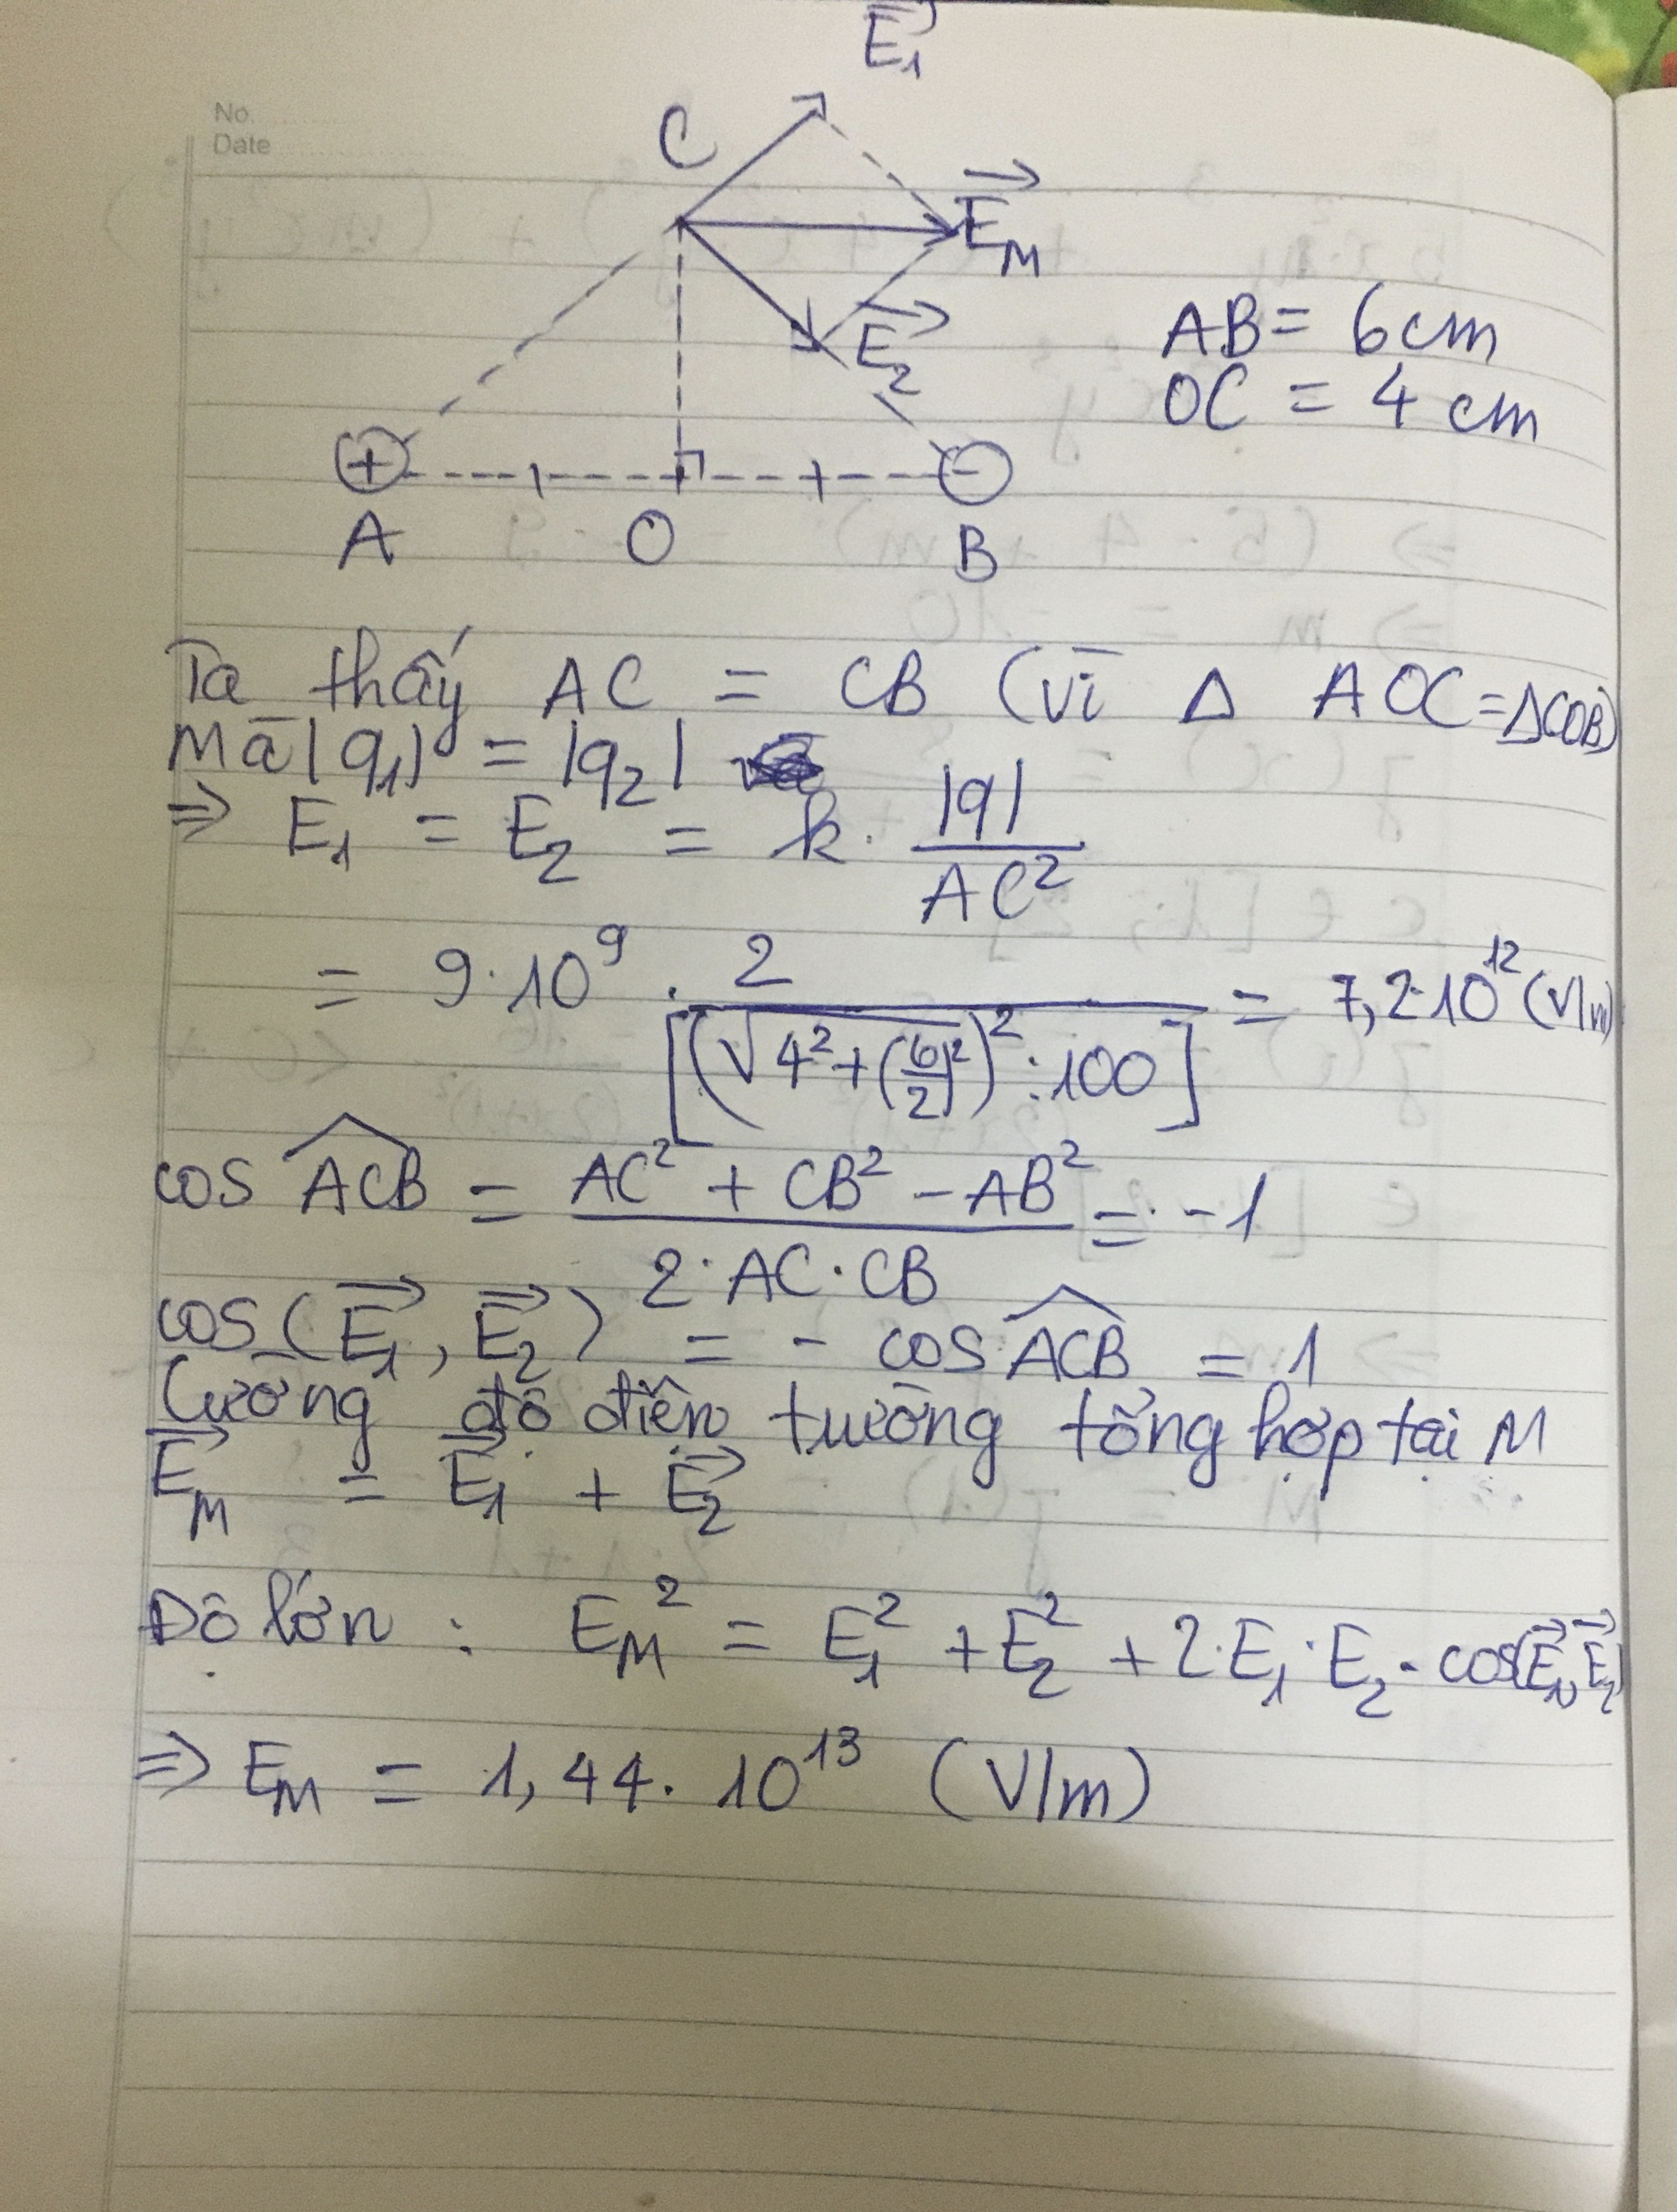 No.
Date
E₁⃗
C
E_M⃗
E₂⃗
AB = 6cm
OC = 4 cm
+
-
A O B
Ta thấy AC = CB (vì Δ AOC = ΔCOB)
Mà |q₁| = |q₂|
⇒ E₁ = E₂ = k. |q| / AC²
= 9·10⁹ . 2 / [(√4²+(6/2)²)² : 100] = 7,2·10¹² (V/m)
cos ACB^ = (AC² + CB² - AB²) / (2·AC·CB) = -1
cos (E₁⃗, E₂⃗) = - cos ACB^ = 1
Cường độ điện trường tổng hợp tại M
E_M⃗ = E₁⃗ + E₂⃗
Độ lớn : E_M² = E₁² + E₂² + 2·E₁·E₂·cos(E₁⃗, E₂⃗)
⇒ E_M = 1,44. 10¹³ (V/m)